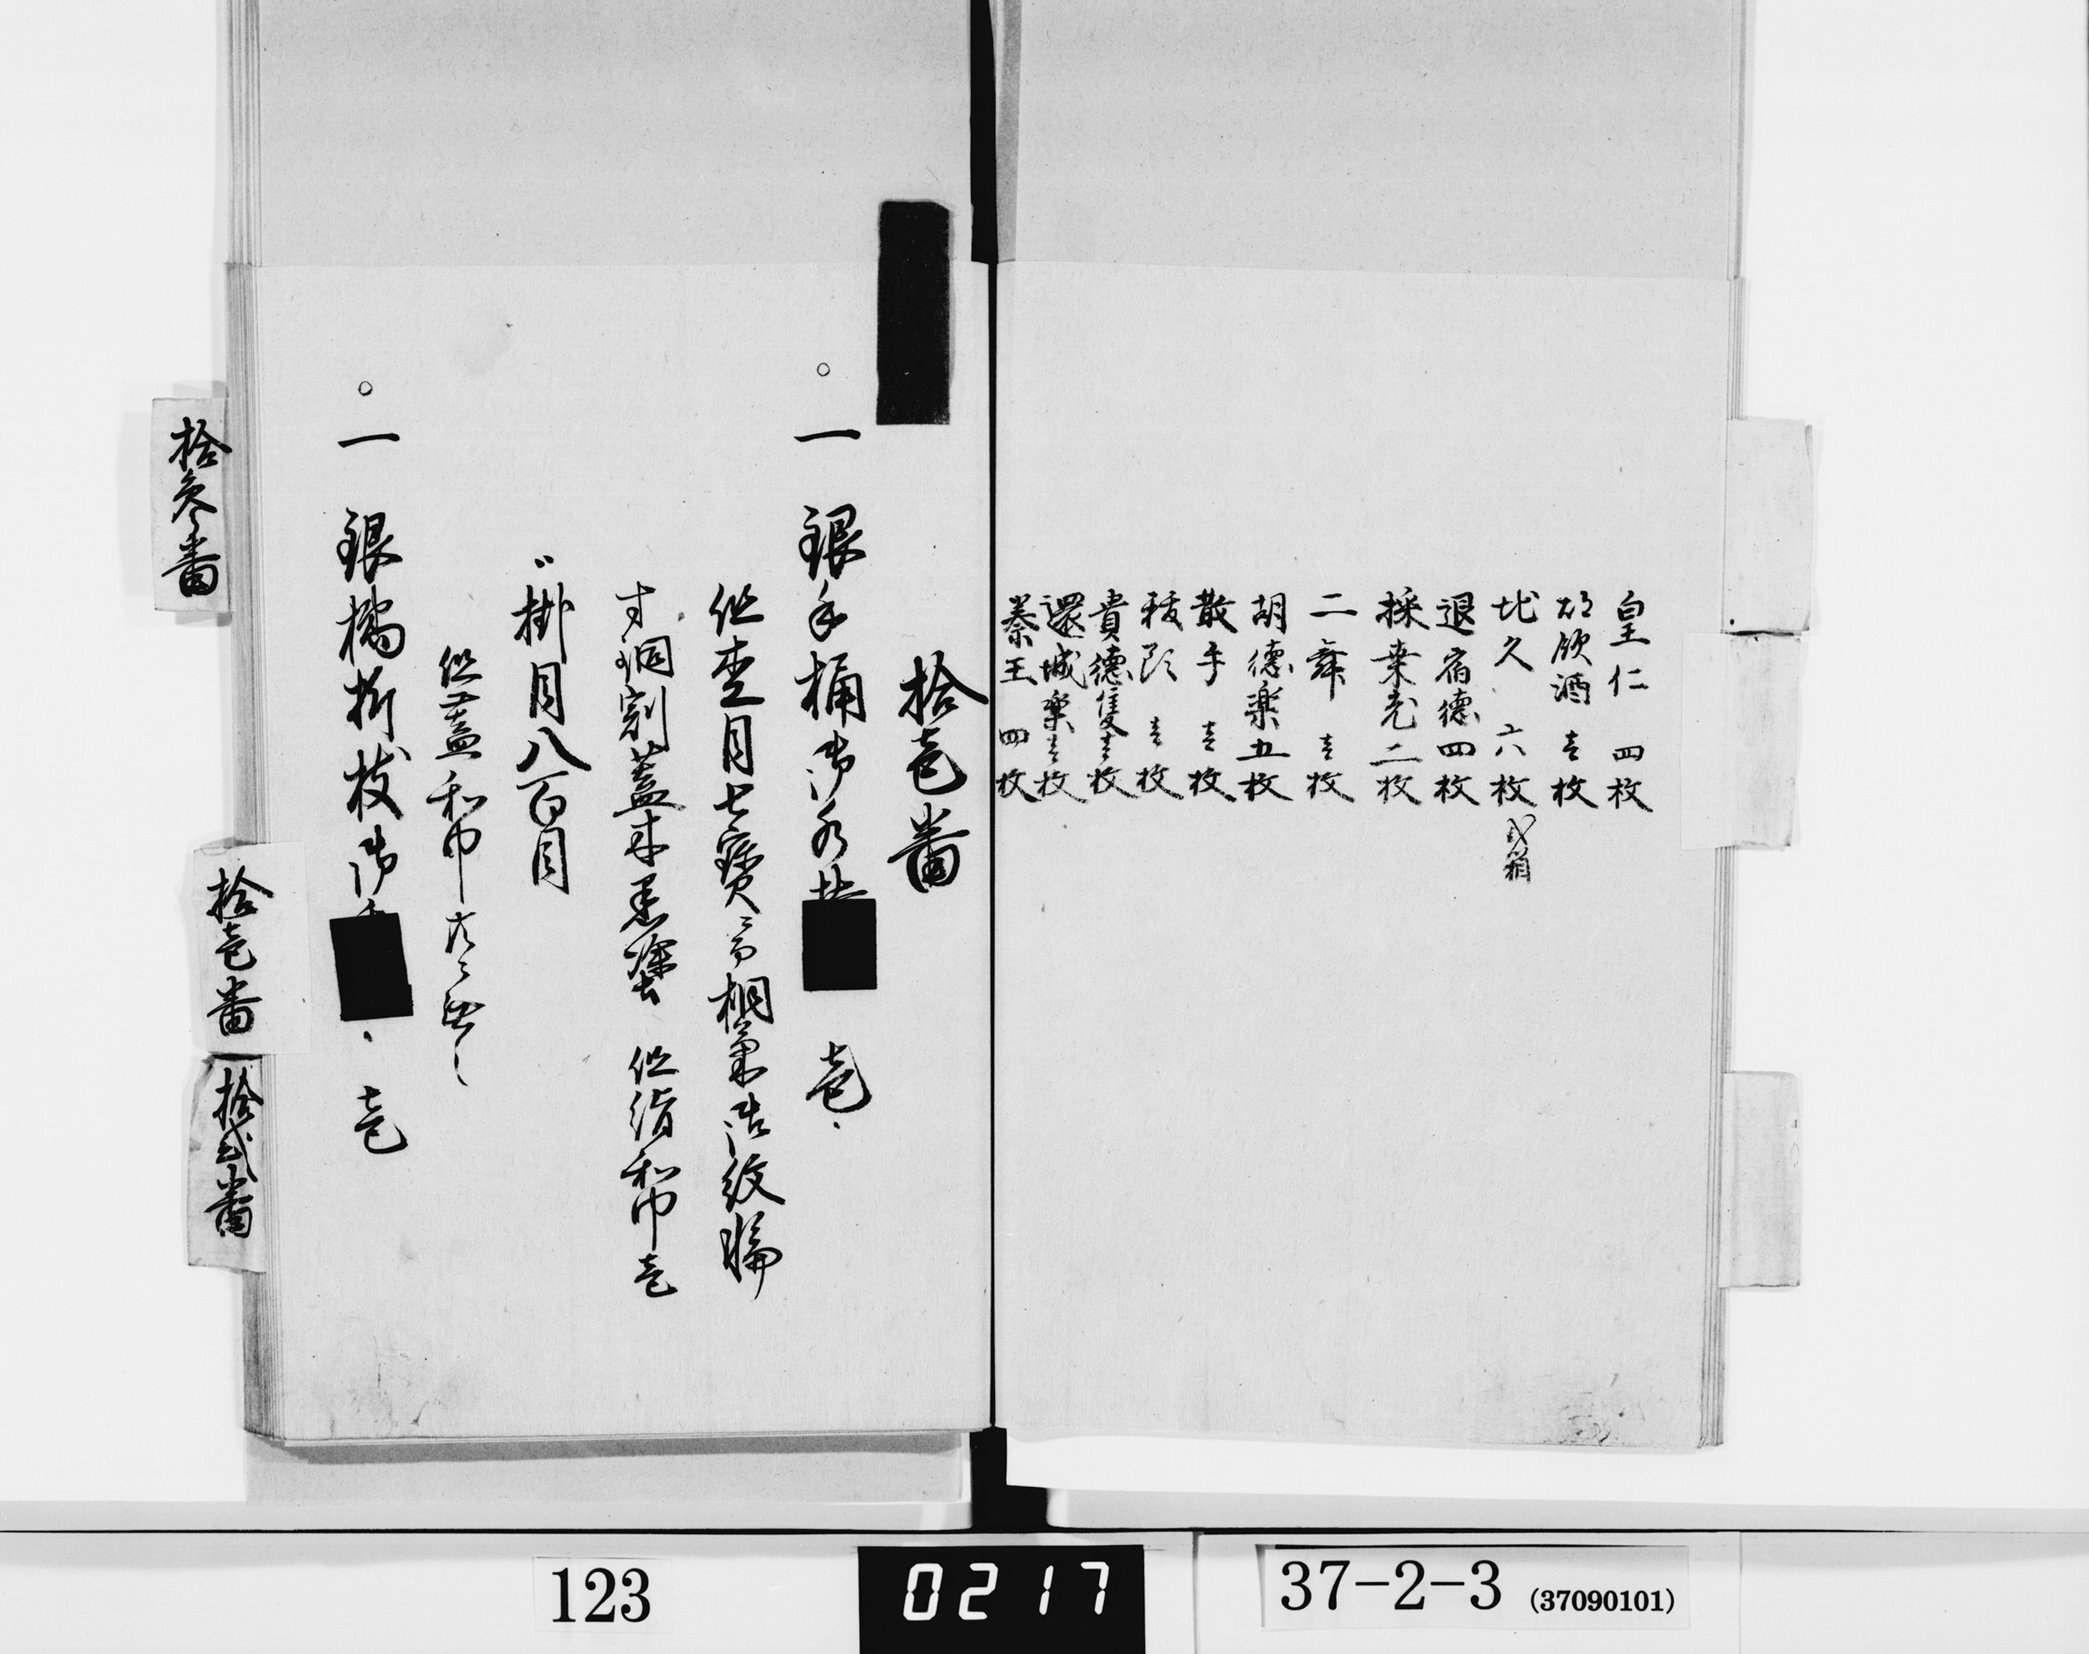 皇仁 四枚
胡飲酒 壱枚
地久 六枚 弐箱
退宿徳四枚
採桑老二枚
二舞 壱枚
胡徳楽五枚
散手 壱枚
抜頭 壱枚
貴徳隻壱枚
還城楽壱枚
秦王 四枚
拾壱番
一 銀手桶御水 壱
但杢目七宝 桐菓御紋
銅割蓋黒塗 但綃和巾壱
掛目八百目
但蓋和巾
一 銀橘折枝御 壱
拾参番
拾壱番
拾弐番
123
0217
37-2-3 (37090101)